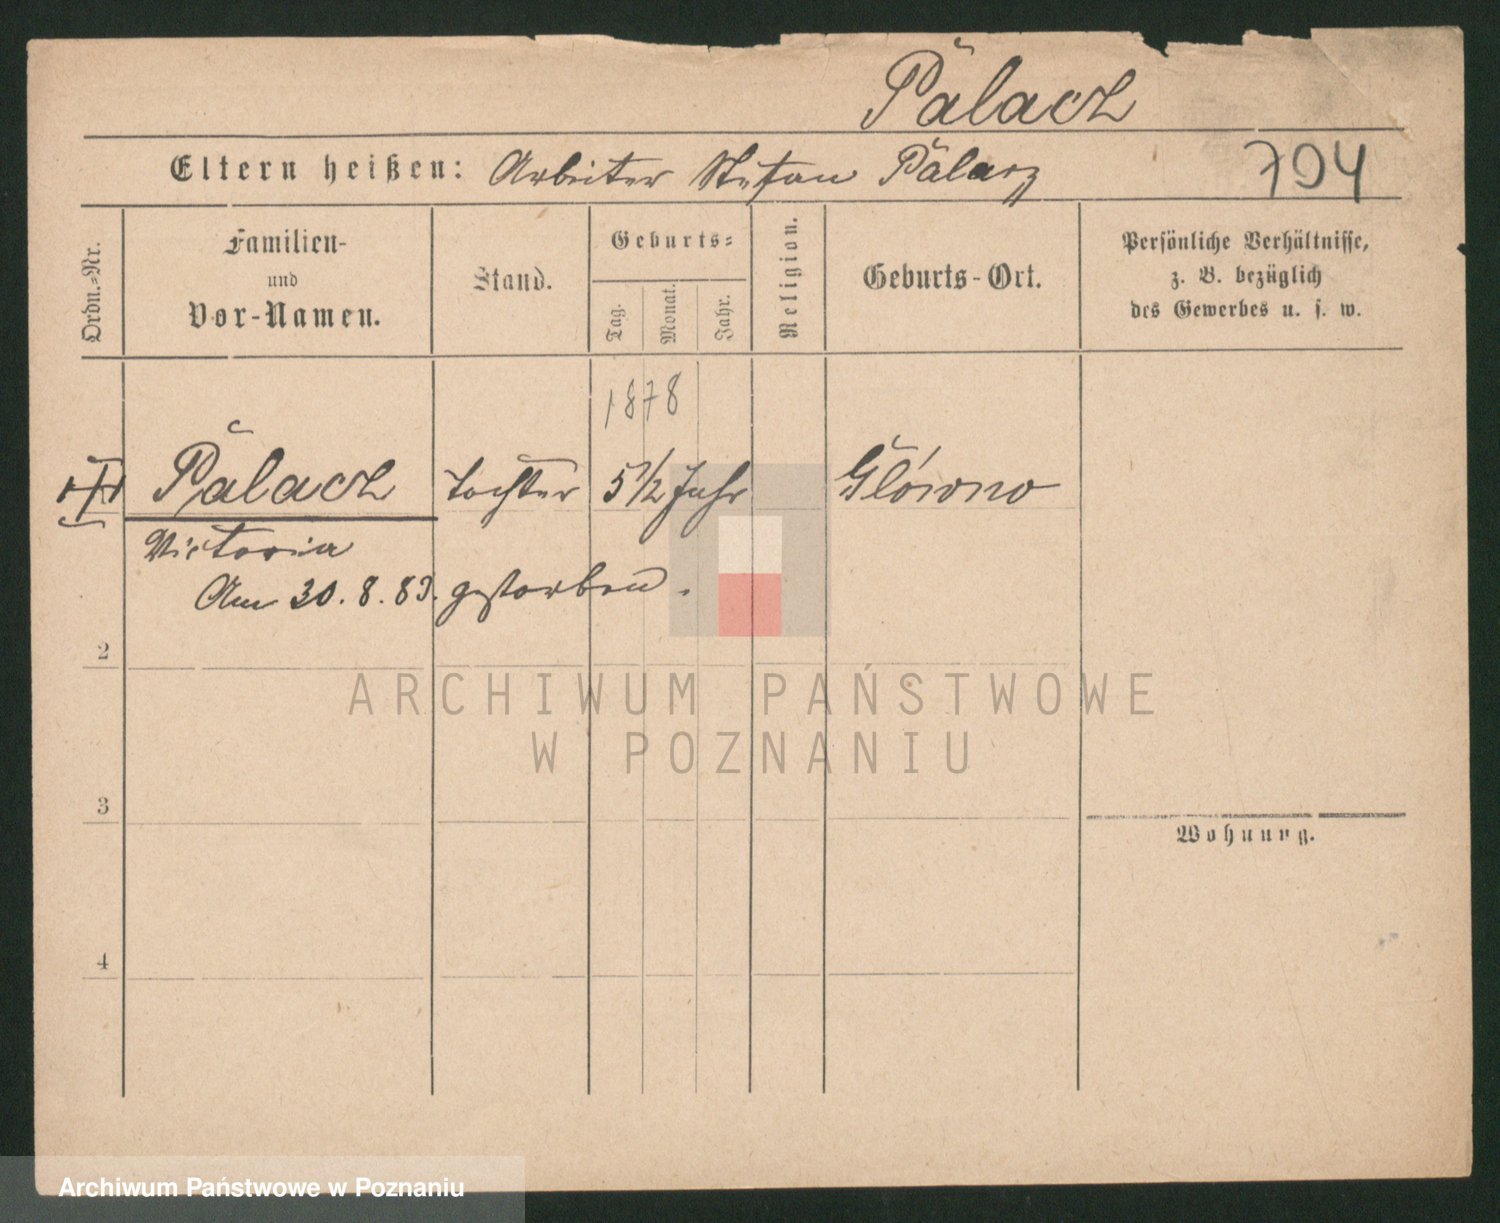 Pălacz
Eltern heißen: Arbeiter Stefan Pălacz 794
Ordn.-Nr.
Familien-
und
Vor-Namen.
Stand.
Geburts-
Tag.
Monat.
Jahr.
Religion.
Geburts-Ort.
Persönliche Verhältnisse,
z. B. bezüglich
des Gewerbes u. s. w.
1878
Pălacz tochter 5 1/2 Jahr Główno
Victoria
Am 30.8.83. gestorben.
2
3
4
Wohnung.
ARCHIWUM PAŃSTWOWE
W POZNANIU
Archiwum Państwowe w Poznaniu